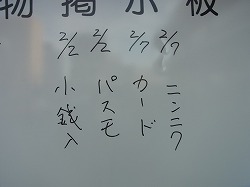 物掲示板
2/2 2/2 2/7 2/7
ニンニク
カード
パスモ
小銭入